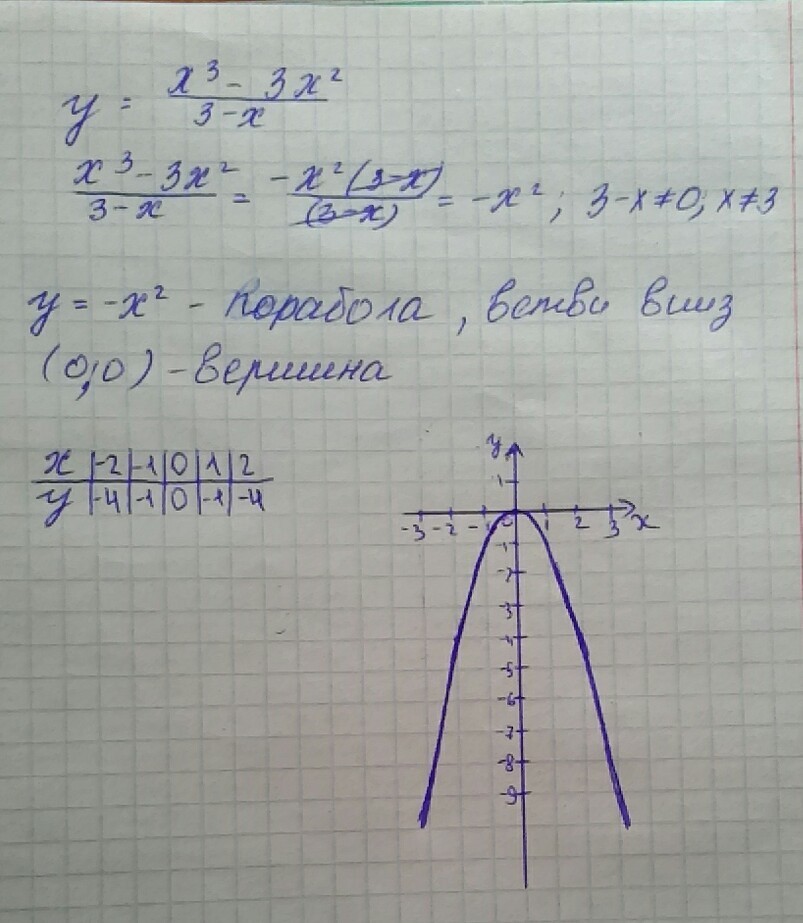 y = (x³ - 3x²)/(3 - x)
(x³ - 3x²)/(3 - x) = (-x²(3-x))/((3-x)) = -x² ; 3-x≠0; x≠3
y = -x² - Порабола , ветви вниз
(0;0) - вершина
x | -2 | -1 | 0 | 1 | 2
y | -4 | -1 | 0 | -1 | -4
y
1
-3 -2 -1 0 1 2 3 x
-1
-2
-3
-4
-5
-6
-7
-8
-9